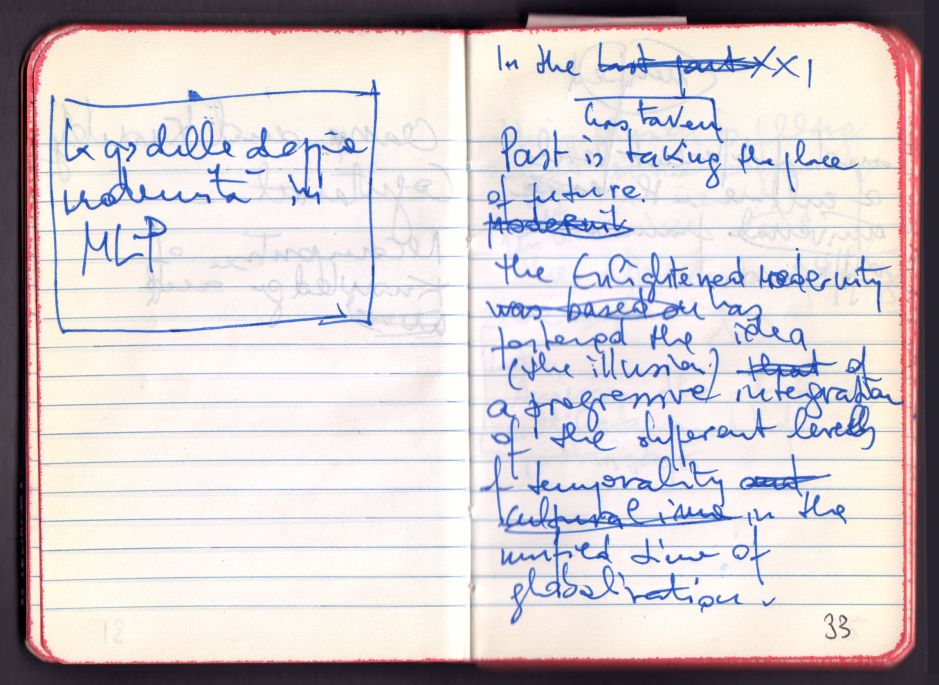 modernità in
MLP
In the last part XXI
has taken
Past is taking the place
of future.
Modernit
the Enlightened modernity
was based on has
fostered the idea
(the illusion) that of
a progressive integration
of the different levels
of temporality and
cultural time in the
unified time of
globalization.
33